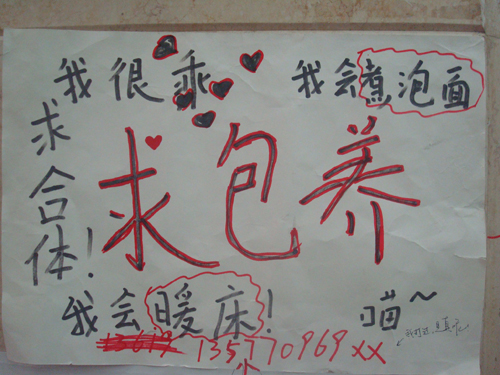 我很乖 我会煮泡面
求合体!
求包养
我会暖床!
喵~
135770969xx